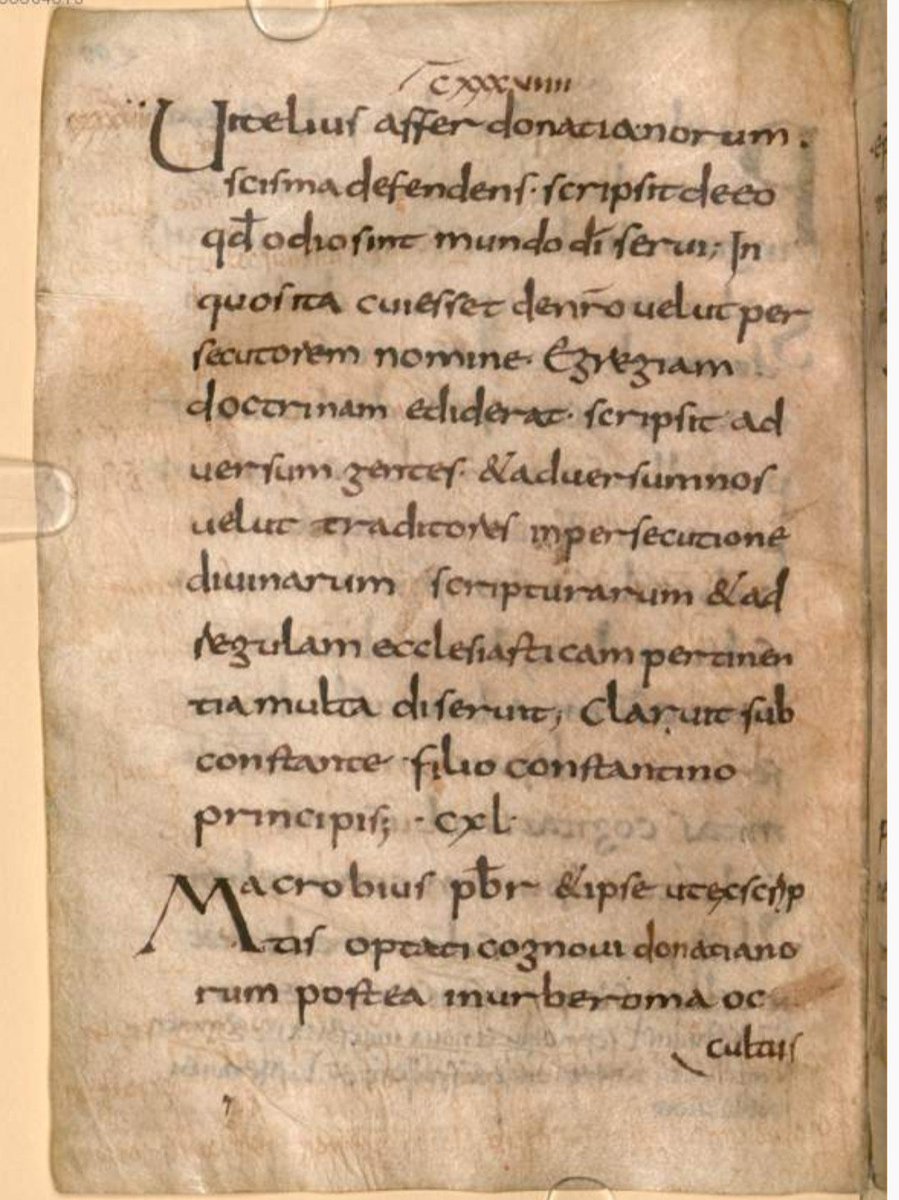 CXXXVIIII
Uitelius affer donatianorum.
scisma defendens· scripsit deeo
qđ odiosint mundo dī serui; In
quosita cuiesset denr̄o uelut per
secutorem nomine· Egregiam
doctrinam ediderat· scripsit ad
uersum gentes· &aduersumnos
uelut traditores inpersecutione
diuinarum scripturarum &ad
regulam ecclesiasticam pertinen
tiamulta diseruit; Claruit sub
constante filio constantino
principis; ·CXL·
Macrobius pb̄r &ipse utexscrip
tis optati cognoui donatiano
rum postea inurberoma oc
cultus